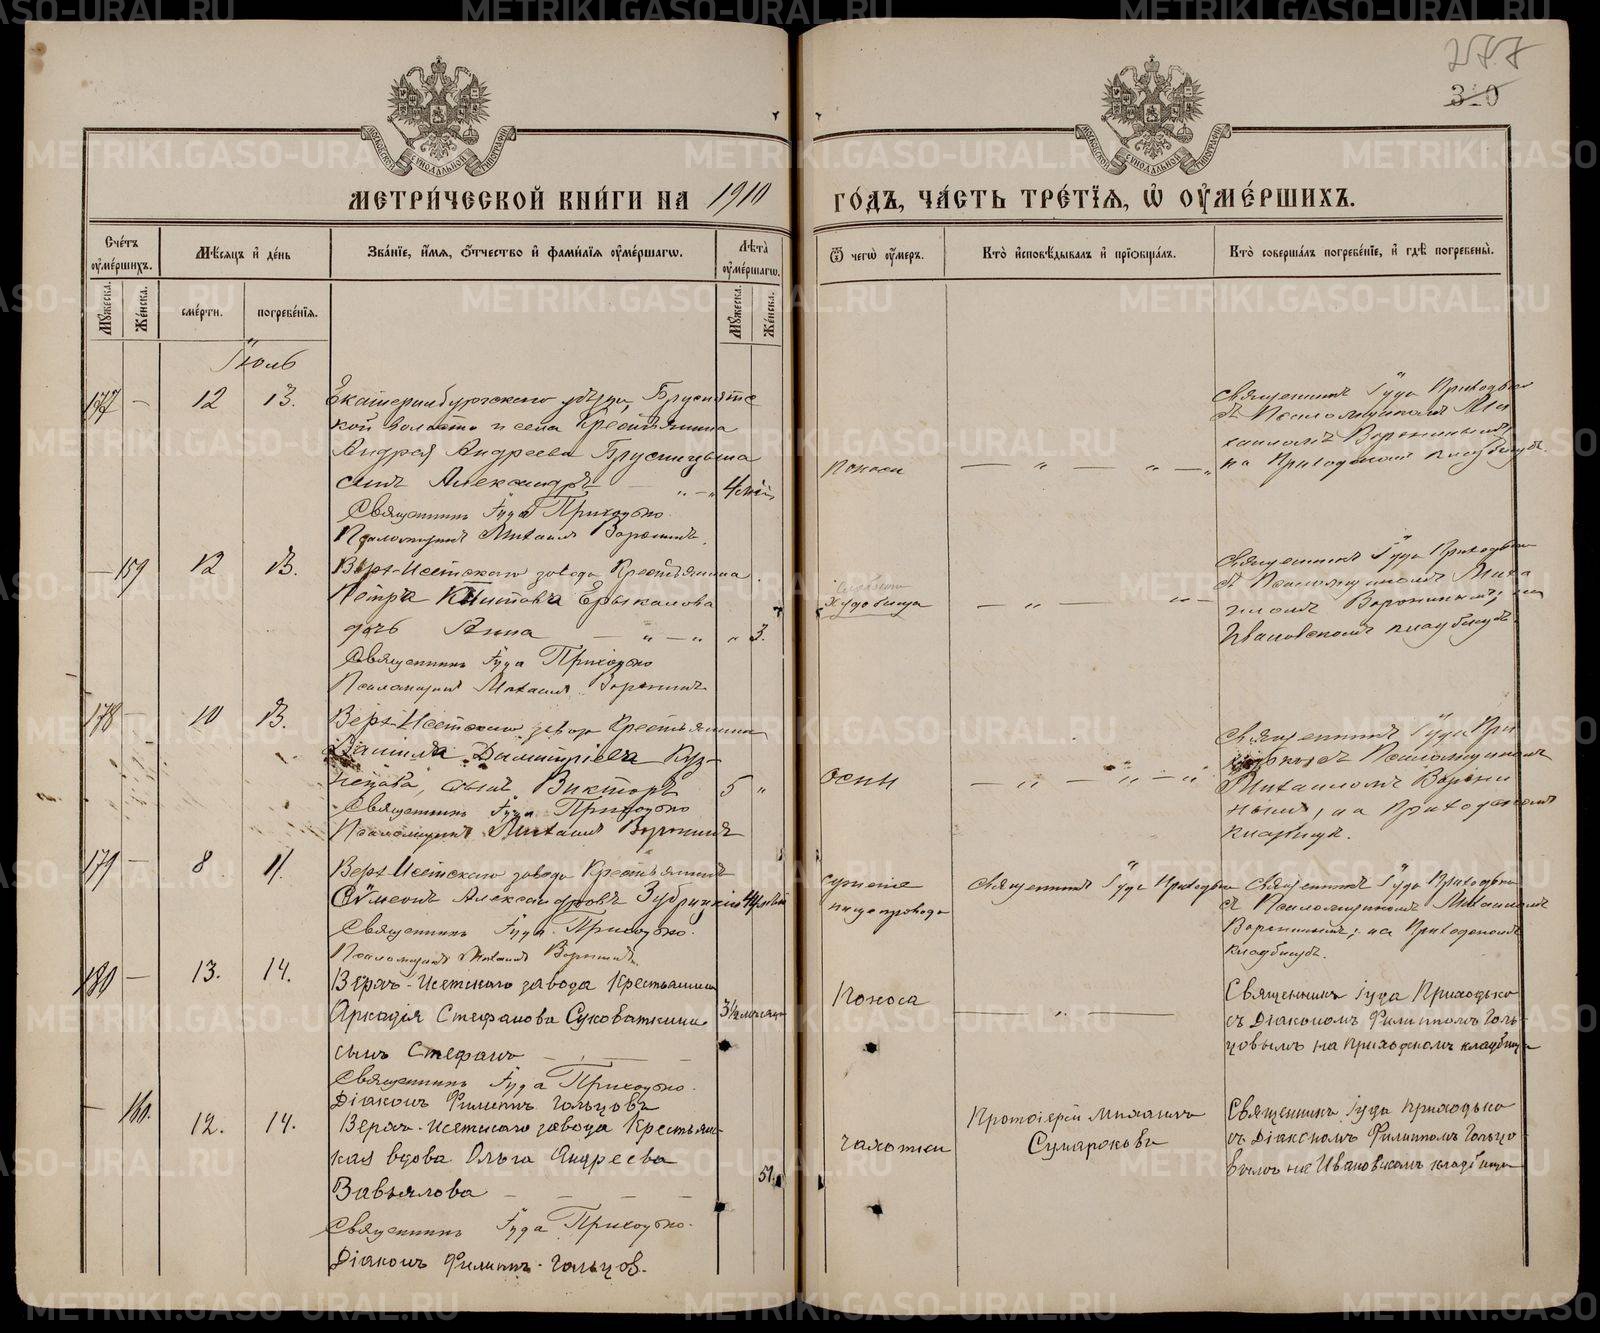 277
310
МЕТРИ́ЧЕСКОЙ КНИ́ГИ НА 1910 ГО́ДЪ, ЧА́СТЬ ТРЕ́ТЇѦ, Ѽ ОУ҆МЕ́РШИХЪ.
Сче́тъ оу҆ме́ршихъ.
Мѣ́сяцъ и҆ де́нь
Зва́нїе, и҆́мя, ѻ҆́тчество и҆ фами́лїя оу҆ме́ршагѡ.
Лѣ́та оу҆ме́ршагѡ.
Ѿ чегѡ̀ оу҆́меръ.
Кто̀ и҆сповѣ́дывалъ и҆ прїѡбща́лъ.
Кто̀ соверша́лъ погребе́нїе, и҆ гдѣ̀ погребены̀.
Мꙋ́жеска.
Же́нска.
сме́рти.
погребе́нїя.
Мꙋ́жеска.
Же́нска.
Іюль
177 — 12 13.
Екатеринбургскаго уѣзда, Бруснятс
кой волости и села Крестьянина
Андрея Андреева Брусницына
сынъ Александръ
4 мѣс
Священникъ Іуда Приходько.
Псаломщикъ Михаилъ Воронинъ.
поноса
Священникъ Іуда Приходько
съ Псаломщикомъ Ми
хаиломъ Воронинымъ,
на Приходскомъ кладбищѣ.
— 159 12 13.
Верх-Исетскаго завода Крестьянина
Петра Ерыкалова
дочь Анна
3.
Священникъ Іуда Приходько
Псаломщикъ Михаилъ Воронинъ
Худобища
Священникъ Іуда Приходько
съ Псаломщикомъ Миха
иломъ Воронинымъ; на
Ивановскомъ кладбищѣ.
178 — 10 13.
Верх-Исетскаго завода Крестьянина
Даніила Димитріева Куз-
нецова, сынъ Викторъ
5
Священникъ Іуда Приходько
Псаломщикъ Михаилъ Воронинъ
оспы
Священникъ Іуда При
ходько съ Псаломщикомъ
Михаиломъ Ворони
нымъ, на Приходскомъ
кладбищѣ.
179 — 8 11.
Верх-Исетскаго завода Крестьянинъ
Сѵмеонъ Александровъ Зубрицкій
44 лѣтъ
Священникъ Іуда Приходько.
Псаломщикъ Михаилъ Воронинъ.
суженіе
пищепровода
Священникъ Іуда Приходько
Священникъ Іуда Приходько
съ Псаломщикомъ Михаиломъ
Воронинымъ; на Приходскомъ
кладбищѣ.
180 — 13. 14.
Верхъ-Исетскаго завода Крестьянина
Аркадія Стефанова Суковаткина
сынъ Стефанъ
3½ мѣсяца
Священникъ Іуда Приходько.
Діаконъ Филиппъ Гольцовъ
Поноса
Священникъ Іуда Приходько
съ Діакономъ Филиппомъ Голь-
цовымъ на приходскомъ кладбищѣ
— 160. 12. 14.
Верхъ-Исетскаго завода Крестьян
кая вдова Ольга Андреева
Завьялова
51.
Священникъ Іуда Приходько.
Діаконъ Филиппъ Гольцов.
чахотки
Протоіерей Михаилъ
Сумароковъ
Священникъ Іуда Приходько
съ Діакономъ Филиппомъ Гольцо
вымъ на Ивановскомъ кладбищѣ
METRIKI.GASO-URAL.RU